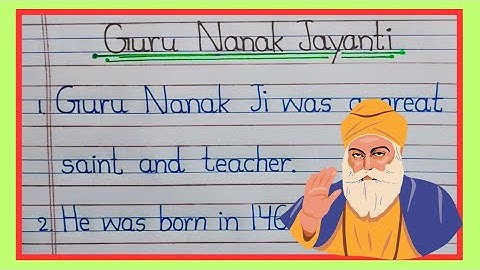 Guru Nanak Jayanti
1. Guru Nanak Ji was a great
saint and teacher.
2. He was born in 146